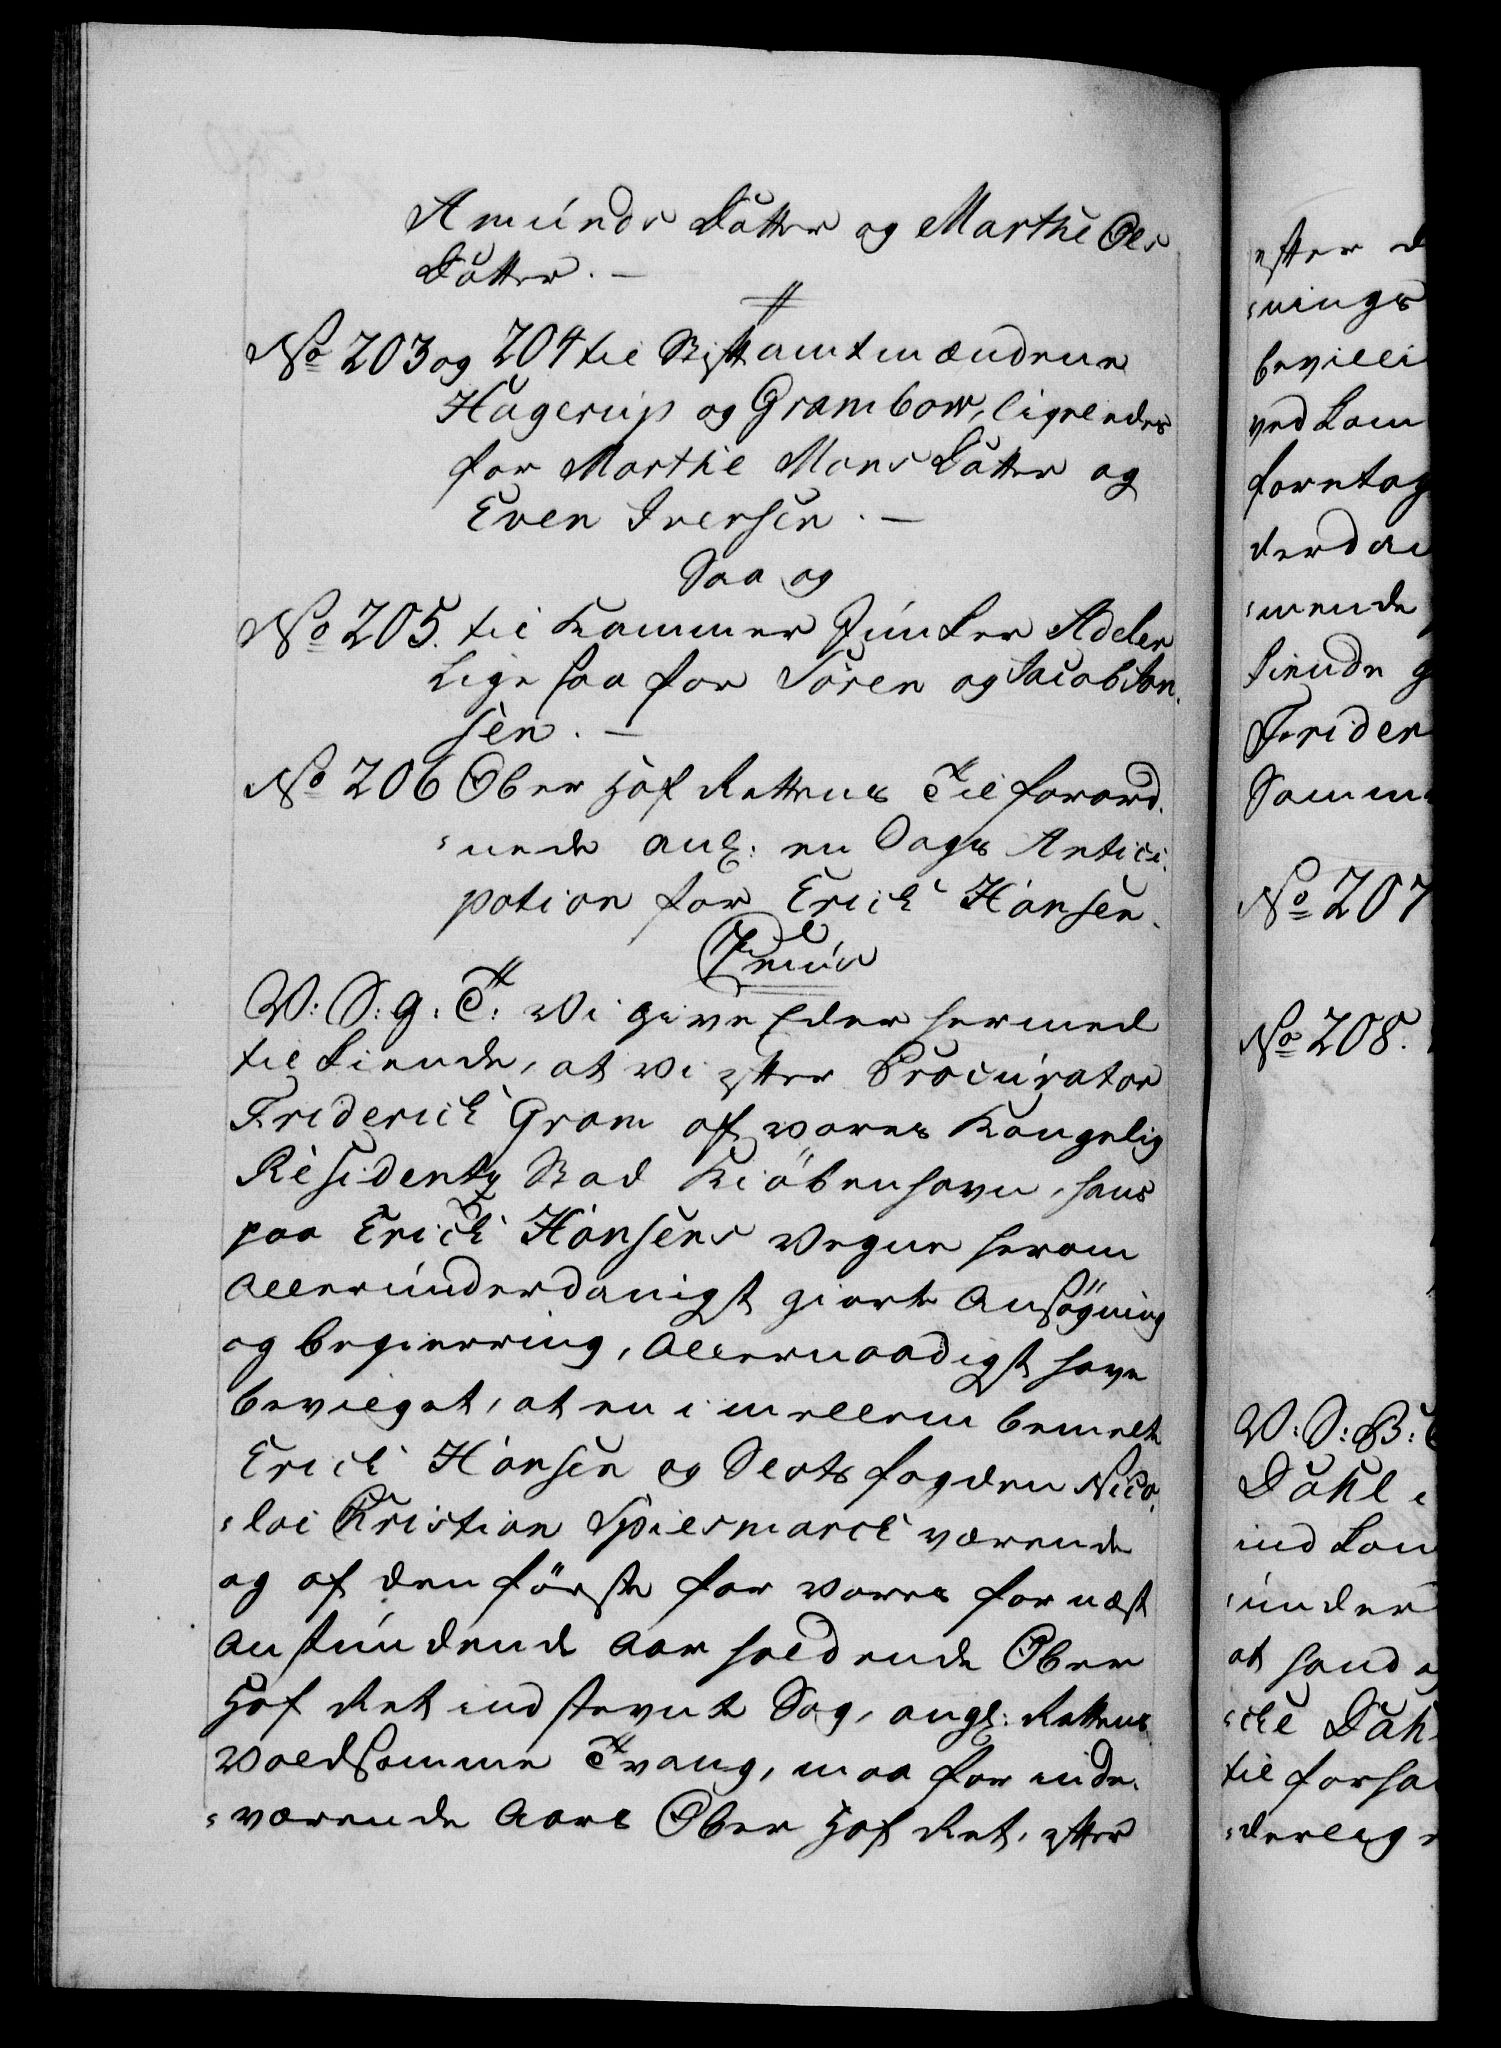 Amunds Datter og Marthe Ols
Datter. —
No 203 og 204 til Stiftamtmændene
Hagerup og Grambow, ligeledes
for Marthe Mons Datter og
Even Iversen. —
Saa og
No 205. til Kammer Junker Adeler
Lige saa for Sören og Jacob Jon
sen. —
No 206 Ober Hof Rettens Tilforord
nede ang: en Sags Antici
pation for Erich Hansen.
W: S: g: T: Wi give Eder hermed
tilkiende, at Wi efter Procurator
Friderich Gram af vores Kongelig
Residentz Stad Kiöbenhavn, hans
paa Erich Hansens Vegne herom
allerunderdanigst giorte Ansögning
og begierring, allernaadigst have
bevilget, at en imellem bemelte
Erich Hansen og Slotsfogden Nico
lai Kristian Spiesmarck værende
og af den förste for vores fornæst
anstundende Aar holdende Ober
Hof Ret indstevnte Sag, angl: Rettens
voldsomme Tvang, maa for inde
værende Aars Ober Hof Ret, efter
efter
nings
bevilli
ved kom
foretag
derdan
mende
kiende g
Frider
Samm
No 207
No 208.
W: S: B:
Dahl
ind kom
under
at hand
che Dah
til forha
derlig